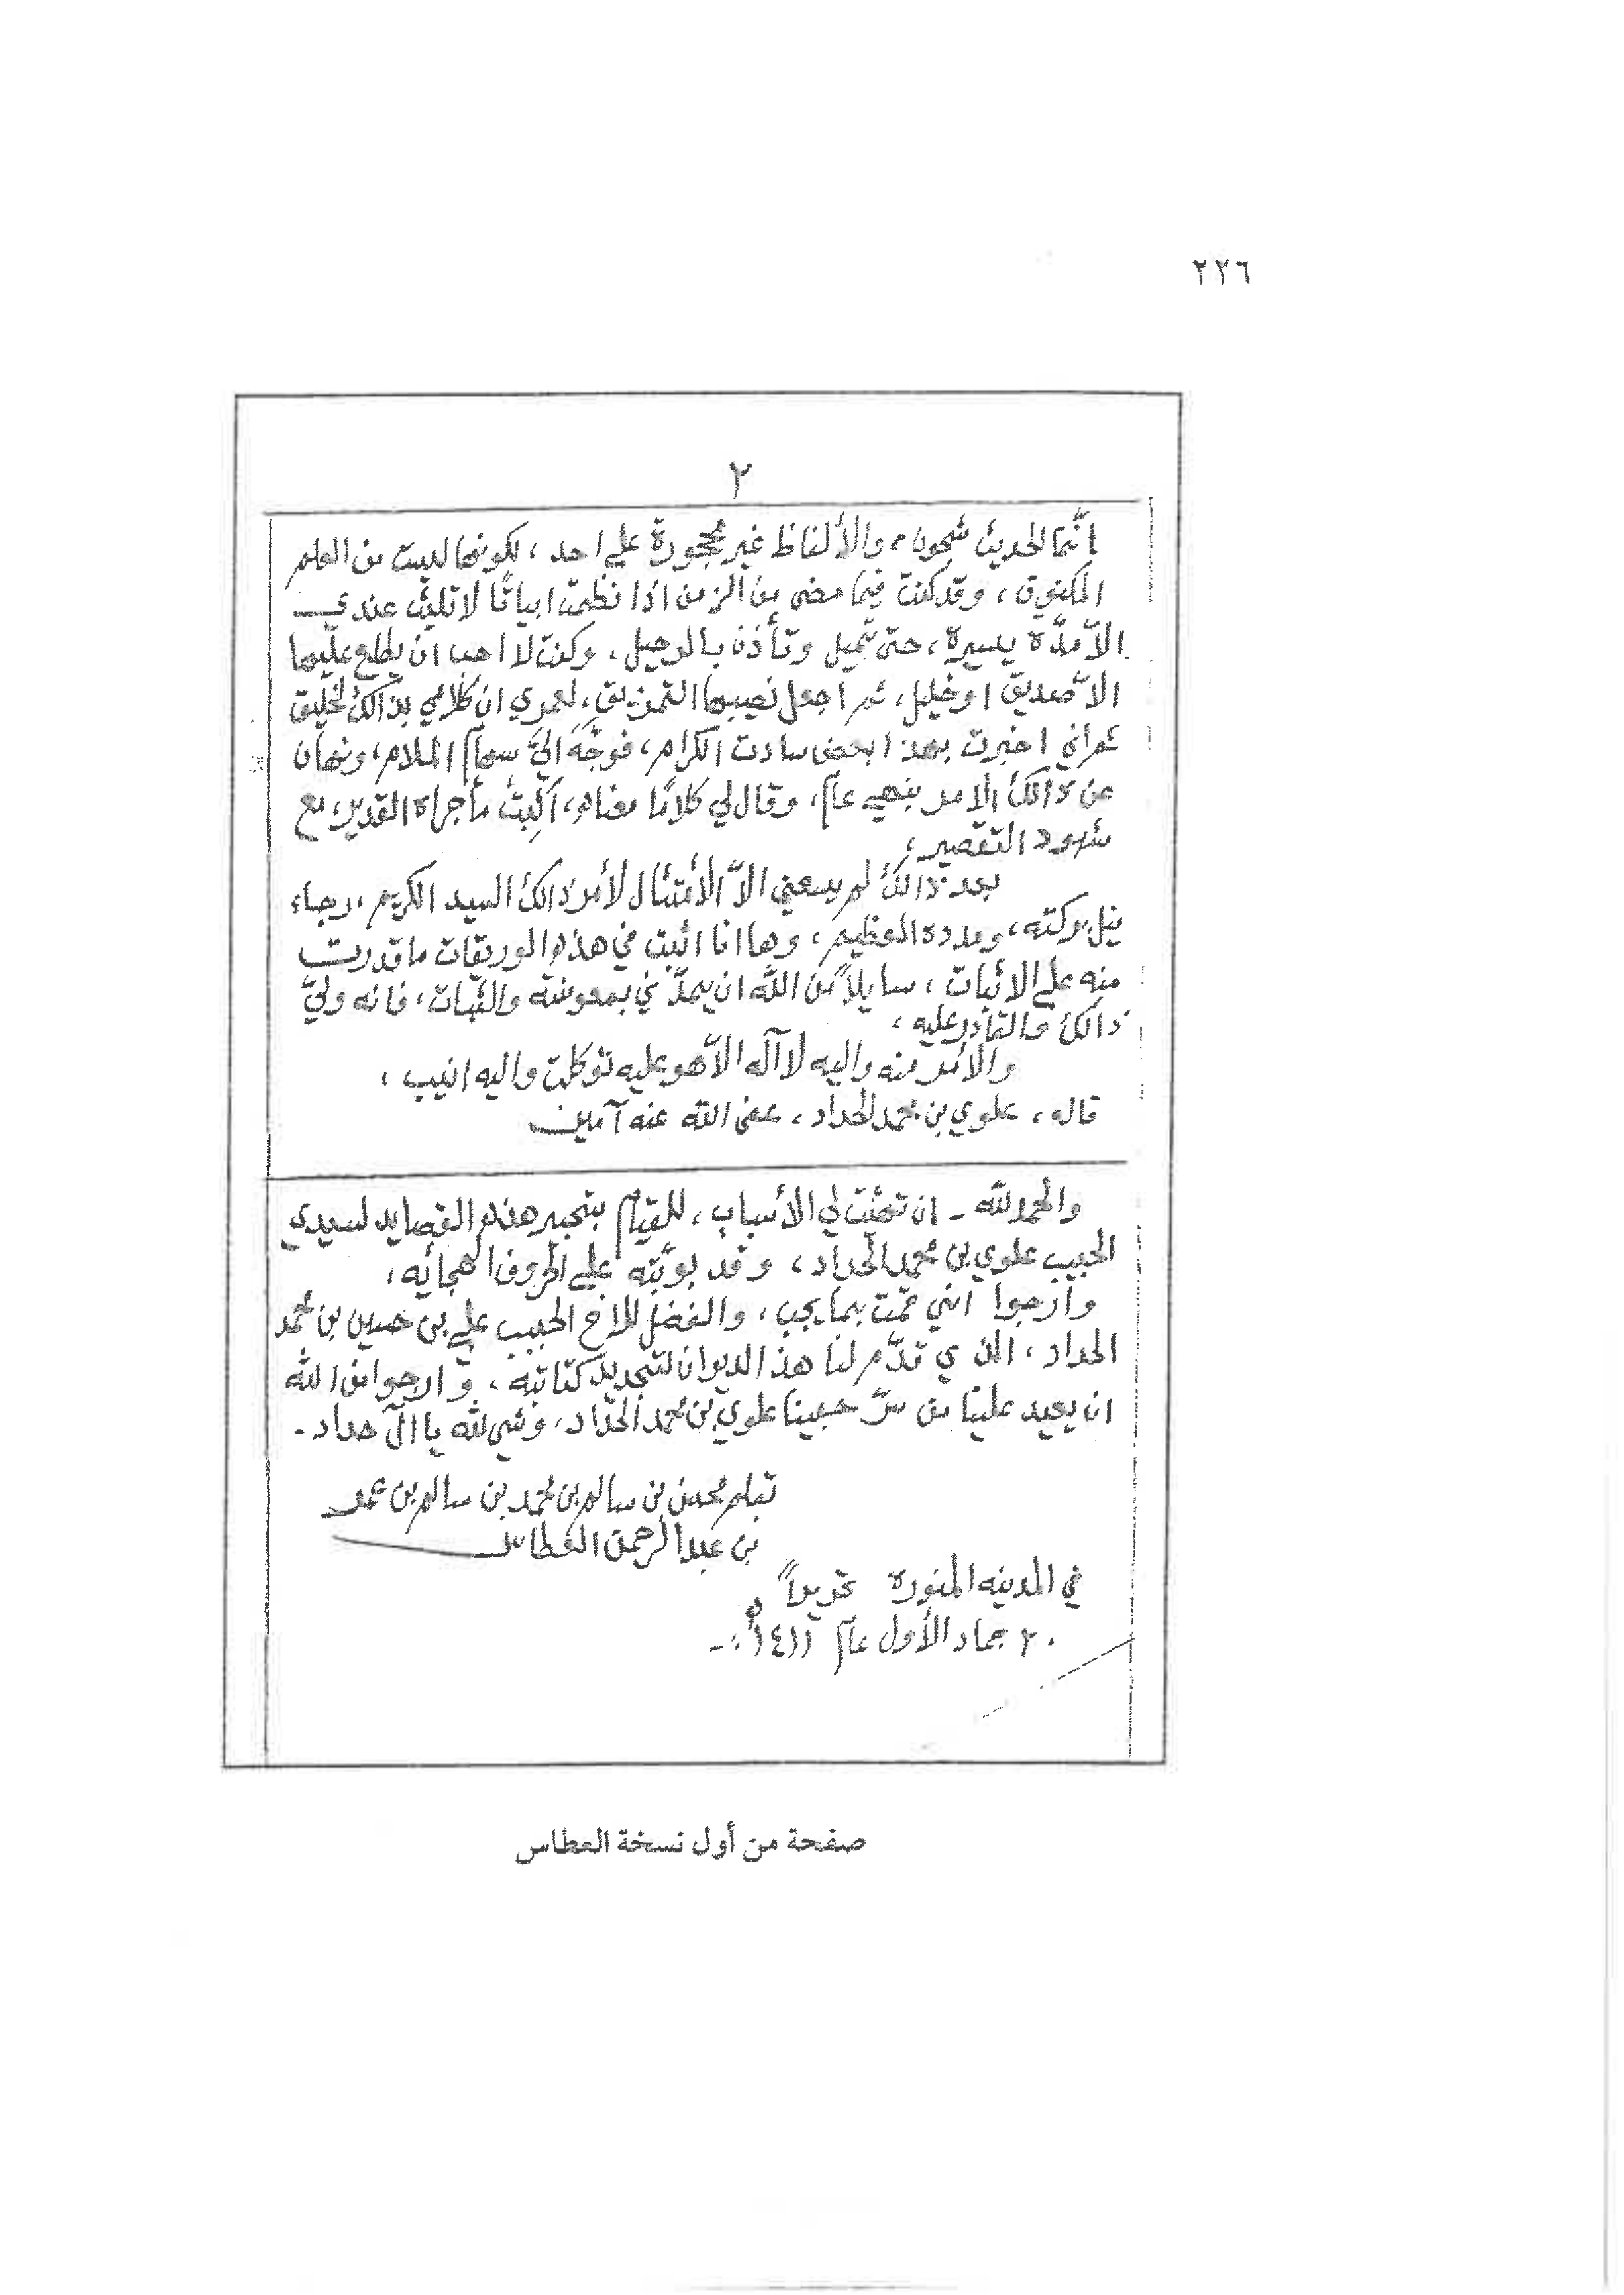 ٢٢٦
٢
إنَّما الحديث شجون، والألفاظ غير محجورة على احد، لكونها ليست من العلم
المكنون، وقد كنت فيما مضى من الزمن اذا نظمت ابياتًا لا تلبث عندي
الاّ مدَّه يسيرة، حتى تميل وتأذن بالرحيل، وكنت لا احب ان يطلع عليها
الاّ صديق او خليل، ثم اجعل نصيبها التمزيق، لعمري ان كلامي بذالك لخليق
ثم اني اخبرت بهذا بعض سادت الكرام، فوجَّهَ اليَّ سهام الملام، ونهان
عن ذالك الامر بنهي عام، وقال لي كلامًا معناه، اكتبْ ما أجراه القدير، مع
شهود التقصير،
بعد ذالك لم يسعني الاّ الأمتثال لأمر ذالك السيد الكريم، رجاء
نيل بركته، ومدده العظيم، وها انا اثبت في هذه الوريقات ما قدرت
منه على الاثبات، سايلاً من الله ان يمدَّني بمعونته والثبات، فانه وليُّ
ذالك والقادر عليه،
والأمر منه واليه لا آله الاّ هو عليه توكلت واليه انيب،
قاله، علوي بن محمد الحداد، عفى الله عنه آمين
والحمد لله - ان تهيئت لي الأسباب، للقيام بتحبير هذه القصايد لسيدي
الحبيب علوي بن محمد الحداد، وقد بوَّبته على الحروف الهجائيه،
وارجوا انني قمت بما يجب، والفضل للاخ الحبيب علي بن حسين بن محمد
الحداد، الذي قدّم لنا هذ الديوان لتجديد كتابته، وارجوا من الله
ان يعيد علينا من سرّ حبيبنا علوي بن محمد الحدّاد، وشي لله يا آل حداد -
بقلم محسن بن سالم بن محمد بن سالم بن عمر
بن عبد الرحمن العطاس
في المدينه المنوره تحريراً
٢٠ جماد الأول عام ١٤١١ ه -
صفحة من أول نسخة العطاس